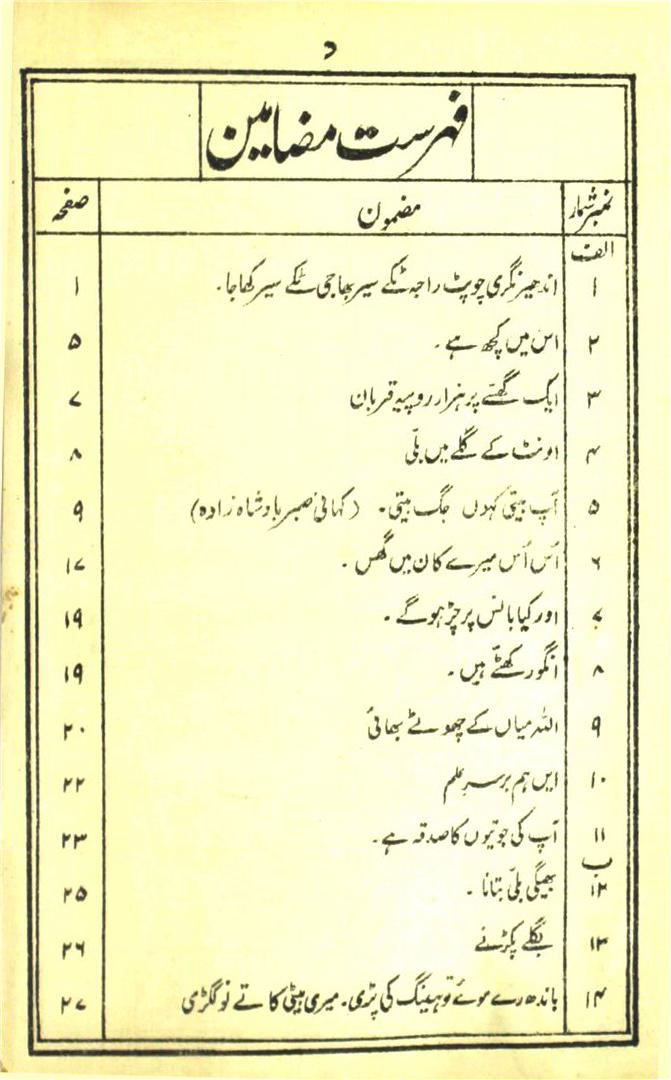 د
فہرست مضامین
نمبر شمار مضمون صفحہ
الف
۱ اندھیر نگری چوپٹ راجہ ٹکے سیر بھاجی ٹکے سیر کھاجا۔ ۱
۲ اس میں کچھ ہے۔ ۵
۳ ایک گھسّے پر ہزار روپیہ قربان ۷
۴ اونٹ کے گلے میں بلّی ۸
۵ آپ بیتی کہوں جگ بیتی۔ (کہانی صبر بادشاہ زادہ) ۹
۶ اُس اُس میرے کان میں گھس۔ ۱۷
۷ اور کیا بانس پر چڑہوگے۔ ۱۹
۸ انگور کھٹّے ہیں۔ ۱۹
۹ اللہ میاں کے چھوٹے بھائی ۲۰
۱۰ ایں ہم برسرِ علم ۲۲
۱۱ آپ کی جوتیوں کا صدقہ ہے۔ ۲۳
ب
۱۲ بھیگی بلّی بتانا۔ ۲۵
۱۳ بگلے پکڑنے ۲۶
۱۴ باندھ رے موئے تو ہینگ کی پڑی۔ میری بیٹی کاتے نو لگڑی ۲۷